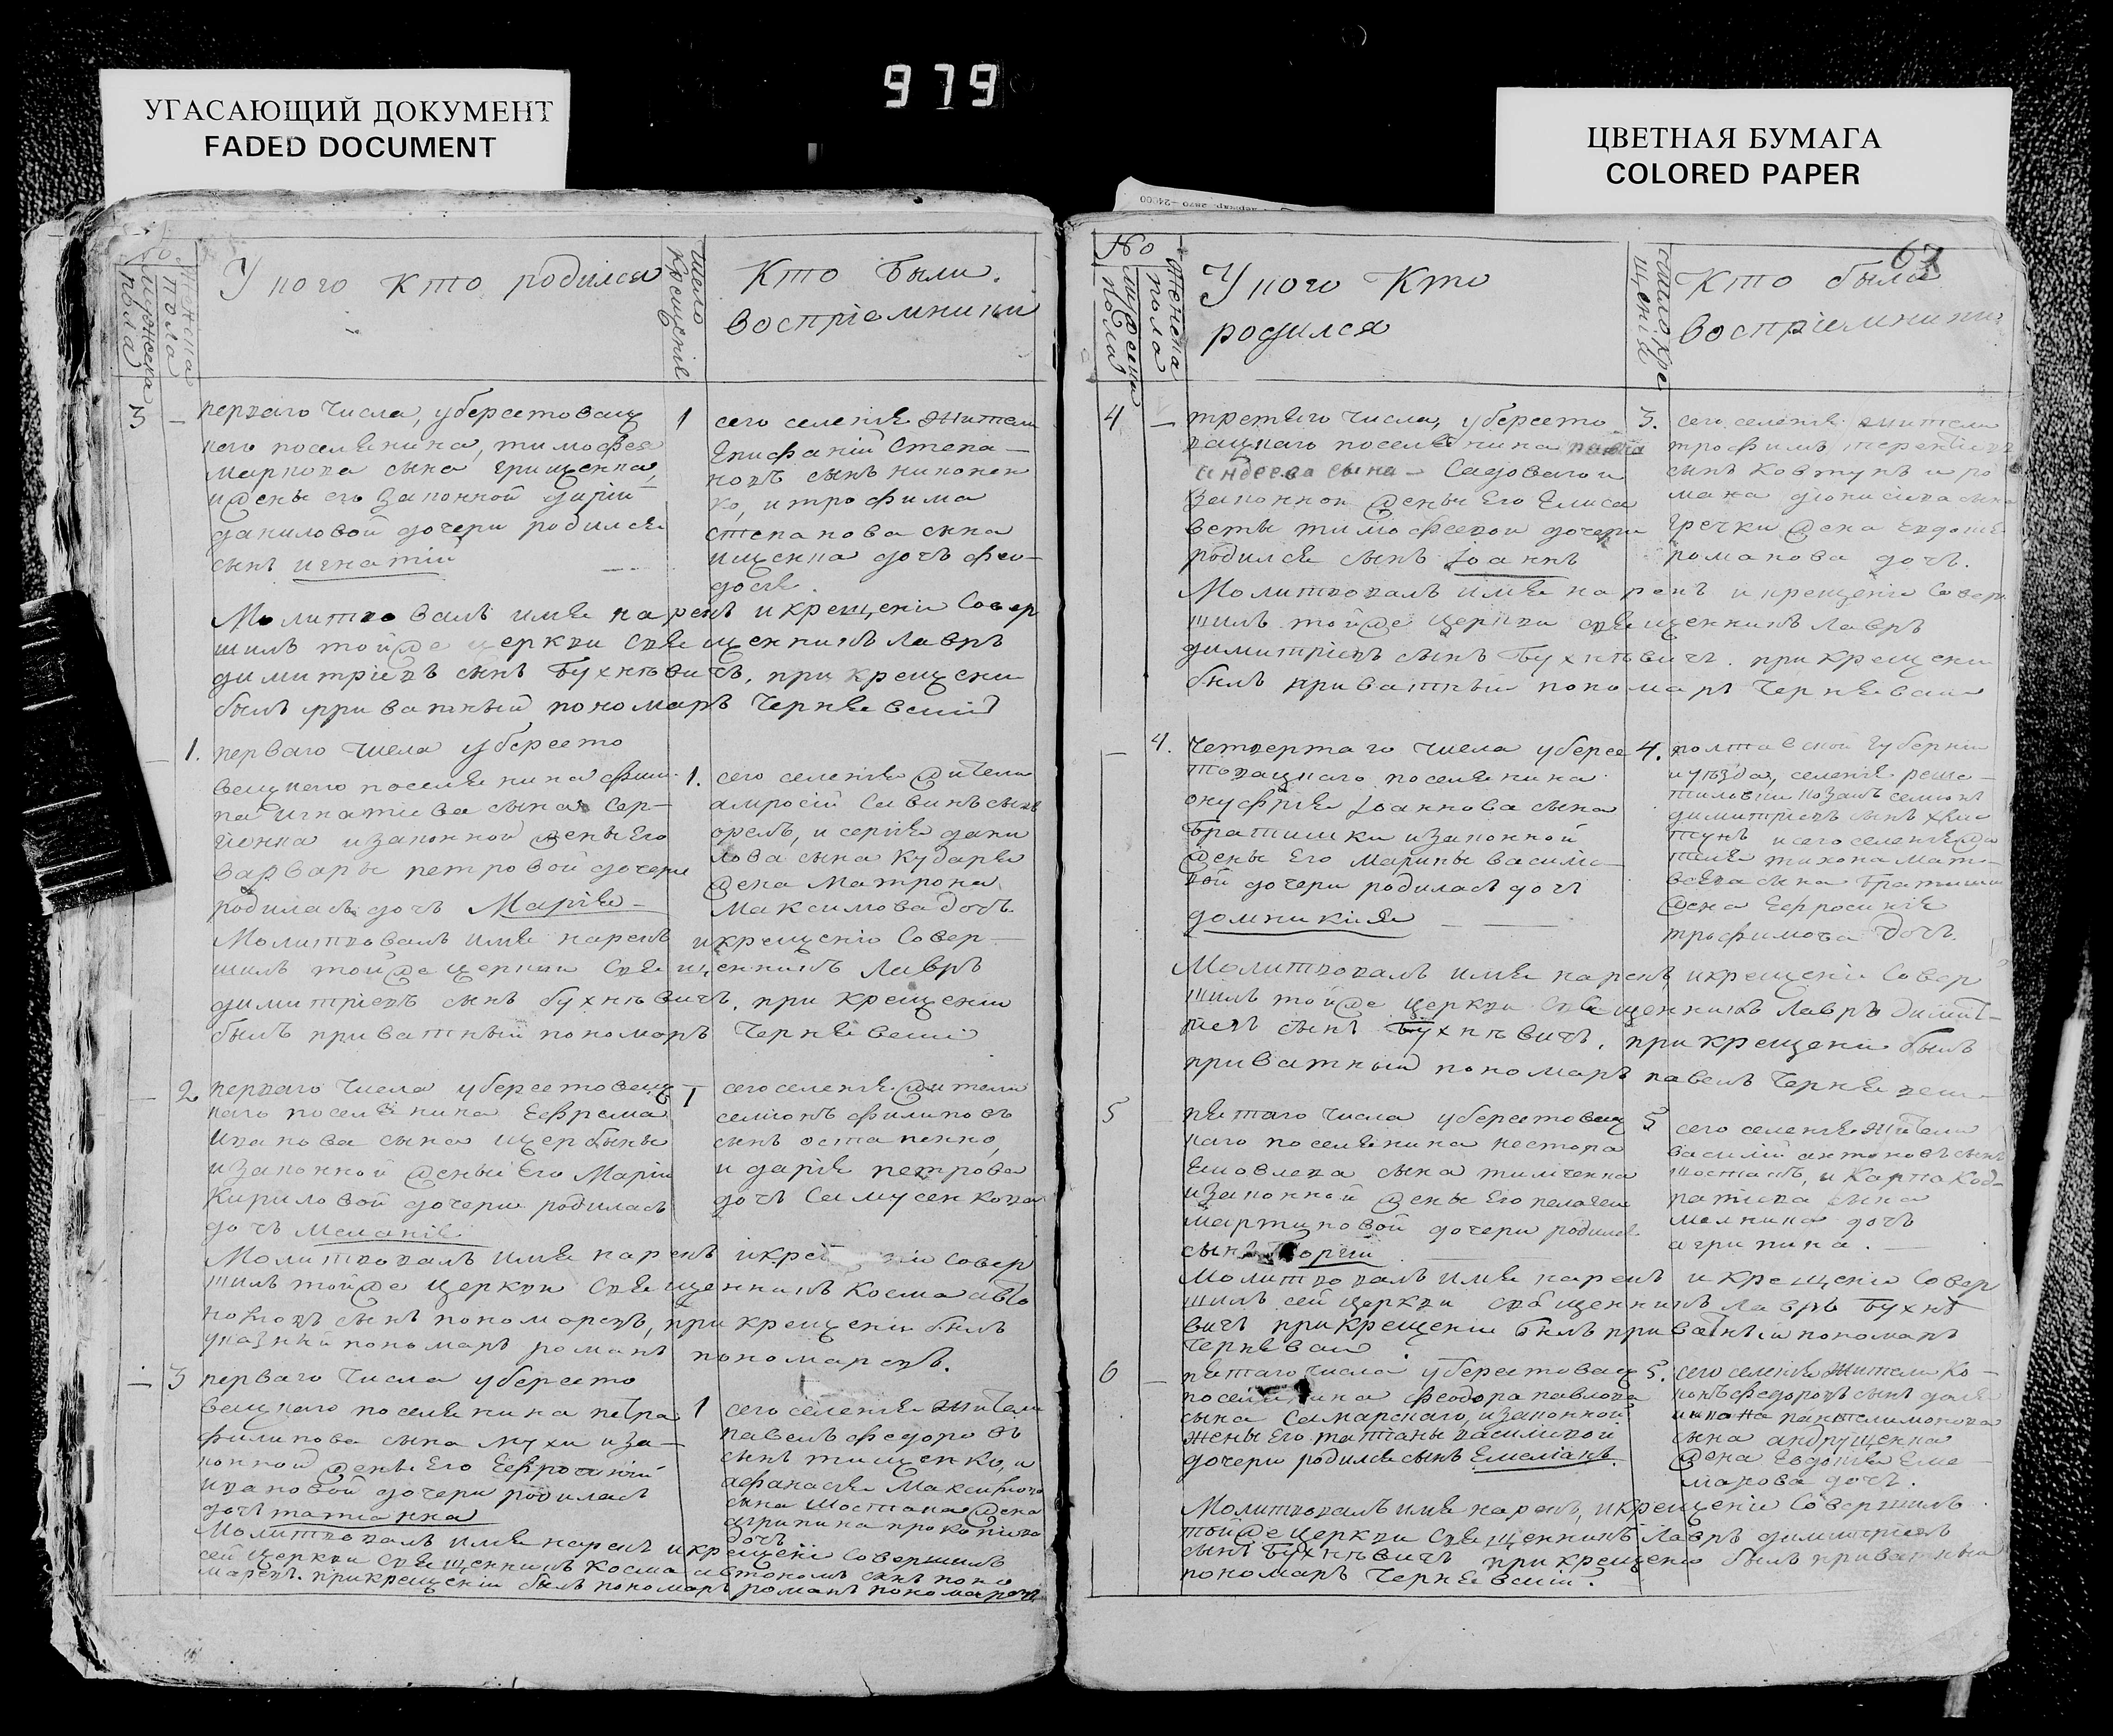 979
УГАСАЮЩИЙ ДОКУМЕНТ
FADED DOCUMENT
ЦВЕТНАЯ БУМАГА
COLORED PAPER
У кого кто родился
Число
Крещенія
Кто были
воспріемники
3
перваго числа, уберестовац
каго поселянина, тимофея
маркова сына грищенка,
и жены его законной дарій
даниловой дочери родился
сынъ игнатій
1
сего селенія жители
Епифаній Степа-
новъ сынъ никонен
ко, и трофима
степанова сына
ищенка дочъ фео-
досія.
Молитвовалъ имя нарекъ и крещеніе Совер
шилъ тойже церкви священникъ Лавръ
димитріевъ сынъ Бухнѣвичъ, при крещеніи
былъ приватный пономаръ Чернявскій
1.
перваго числа убересто
вецкаго поселянина фили
па игнатіева сына Сер-
гіенка и законной жены Его
варвары петровой дочери
родиласъ дочъ Марія
1.
сего селенія жители
амросій Савинъ сынъ
орелъ, и сергія дани
лова сына Кударя
жена Матрона
Максимова дочъ.
Молитвовалъ имя нарекъ и крещеніе Совер-
шилъ тойже церкви священникъ Лавръ
димитріевъ сынъ бухнѣвичъ, при крещеніи
былъ приватный пономаръ Чернявскій
2
перваго числа уберестовец
каго поселянина Ефрема
иванова сына щербины
и законной жены Его Маріи
Кириловой дочери родиласъ
дочъ Меланія
1
сего селенія жители
семіонъ филиповъ
сынъ остапенко,
и дарія петрова
дочъ Самусенкова
Молитвовалъ имя нарекъ и кре
ніе совер
шилъ тойже церкви священникъ Косма авто
номовъ сынъ пономаревъ, при крещеніи былъ
указный пономаръ романъ пономаревъ.
3
перваго числа убересто
вецкаго поселянина петра
филипова сына мухи и за-
конной жены Его Ефросиній
ивановой дочери родиласъ
дочъ татіанна
1
сего селенія жители
павелъ федоровъ
сынъ тищенко, и
афанасія Максимова
сына Шостака жена
агрипина прокопіева
дочъ
Молитвовалъ имя нарекъ и крещеніе совершилъ
сей церкви священникъ Косма автономъ сынъ поно
маревъ. при крещеніи былъ пономаръ романъ пономаревъ
67
No
У кого Кто
родился
число кре
щенія
Кто были
воспріемники
4
третяго числа, убересто
вацкаго поселянина павла
андеева сына Садоваго и
законной жены Его Елиса
веты тимофеевой дочери
родился сынъ Іоаннъ
3.
сего селенія жители
трофимъ терентіевъ
сынъ Ковтунъ и ро
мана діонисіева сына
гречки жена евдокія
романова дочъ.
Молитвовалъ имя нарекъ и крещеніе Совер
шилъ тойже церкви священникъ Лавръ
димитріевъ сынъ Бухнѣвичъ. при крещеніи
былъ приватный пономаръ Чернявскій
4.
четвертаго числа уберес
товацкаго поселянина
онуфрія Іоаннова сына
Братишки и законной
жены Его Марины васил
вой дочери родиласъ дочъ
домникія
4.
полтавской губерніи
и уѣзда, селенія реше
тиловки козакъ семіонъ
димитріевъ сынъ
и сего селенія жи
теля тихона мат-
веева сына братишки
жена Ефросинія
трофимова дочъ.
Молитвовалъ имя нарекъ, и крещеніе Совер
шилъ тойже церкви священникъ Лавръ димит-
ріевъ сынъ Бухнѣвичъ, при крещеніи былъ
приватный пономаръ павелъ Черняв
5
пятаго числа уберестовец
каго поселянина нестора
Яковлева сына тимченка
и законной жены Его пелагеи
мартиновой дочери родился
сынъ
оргій
5
сего селенія жители
василій антоновъ сынъ
шостакъ, и Карпа Код-
ратіева сына
мелника дочъ
агрипина.
Молитвовалъ имя нарекъ и крещеніе Совер
шилъ сей церкви священникъ лавръ Бухнѣ
вичъ при крещеніи былъ приватный пономаръ
Чернявскій
6
пятаго числа уберестовац
посел
нина феодора павлова
сына Самарскаго, и законной
жены Его татіаны василіевой
дочери родился сынъ Емеліанъ
5.
сего селенія жители Ко-
нонъ федоровъ сынъ
пантелимонова
сына андрущенка
жена Евдокія Еме-
ланова дочъ.
Молитвовалъ имя нарекъ, и крещеніе Совершилъ
тойже церкви священникъ Лавръ димитріевъ
сынъ Бухнѣвичъ при крещеніи былъ приватный
пономаръ Чернявскій.